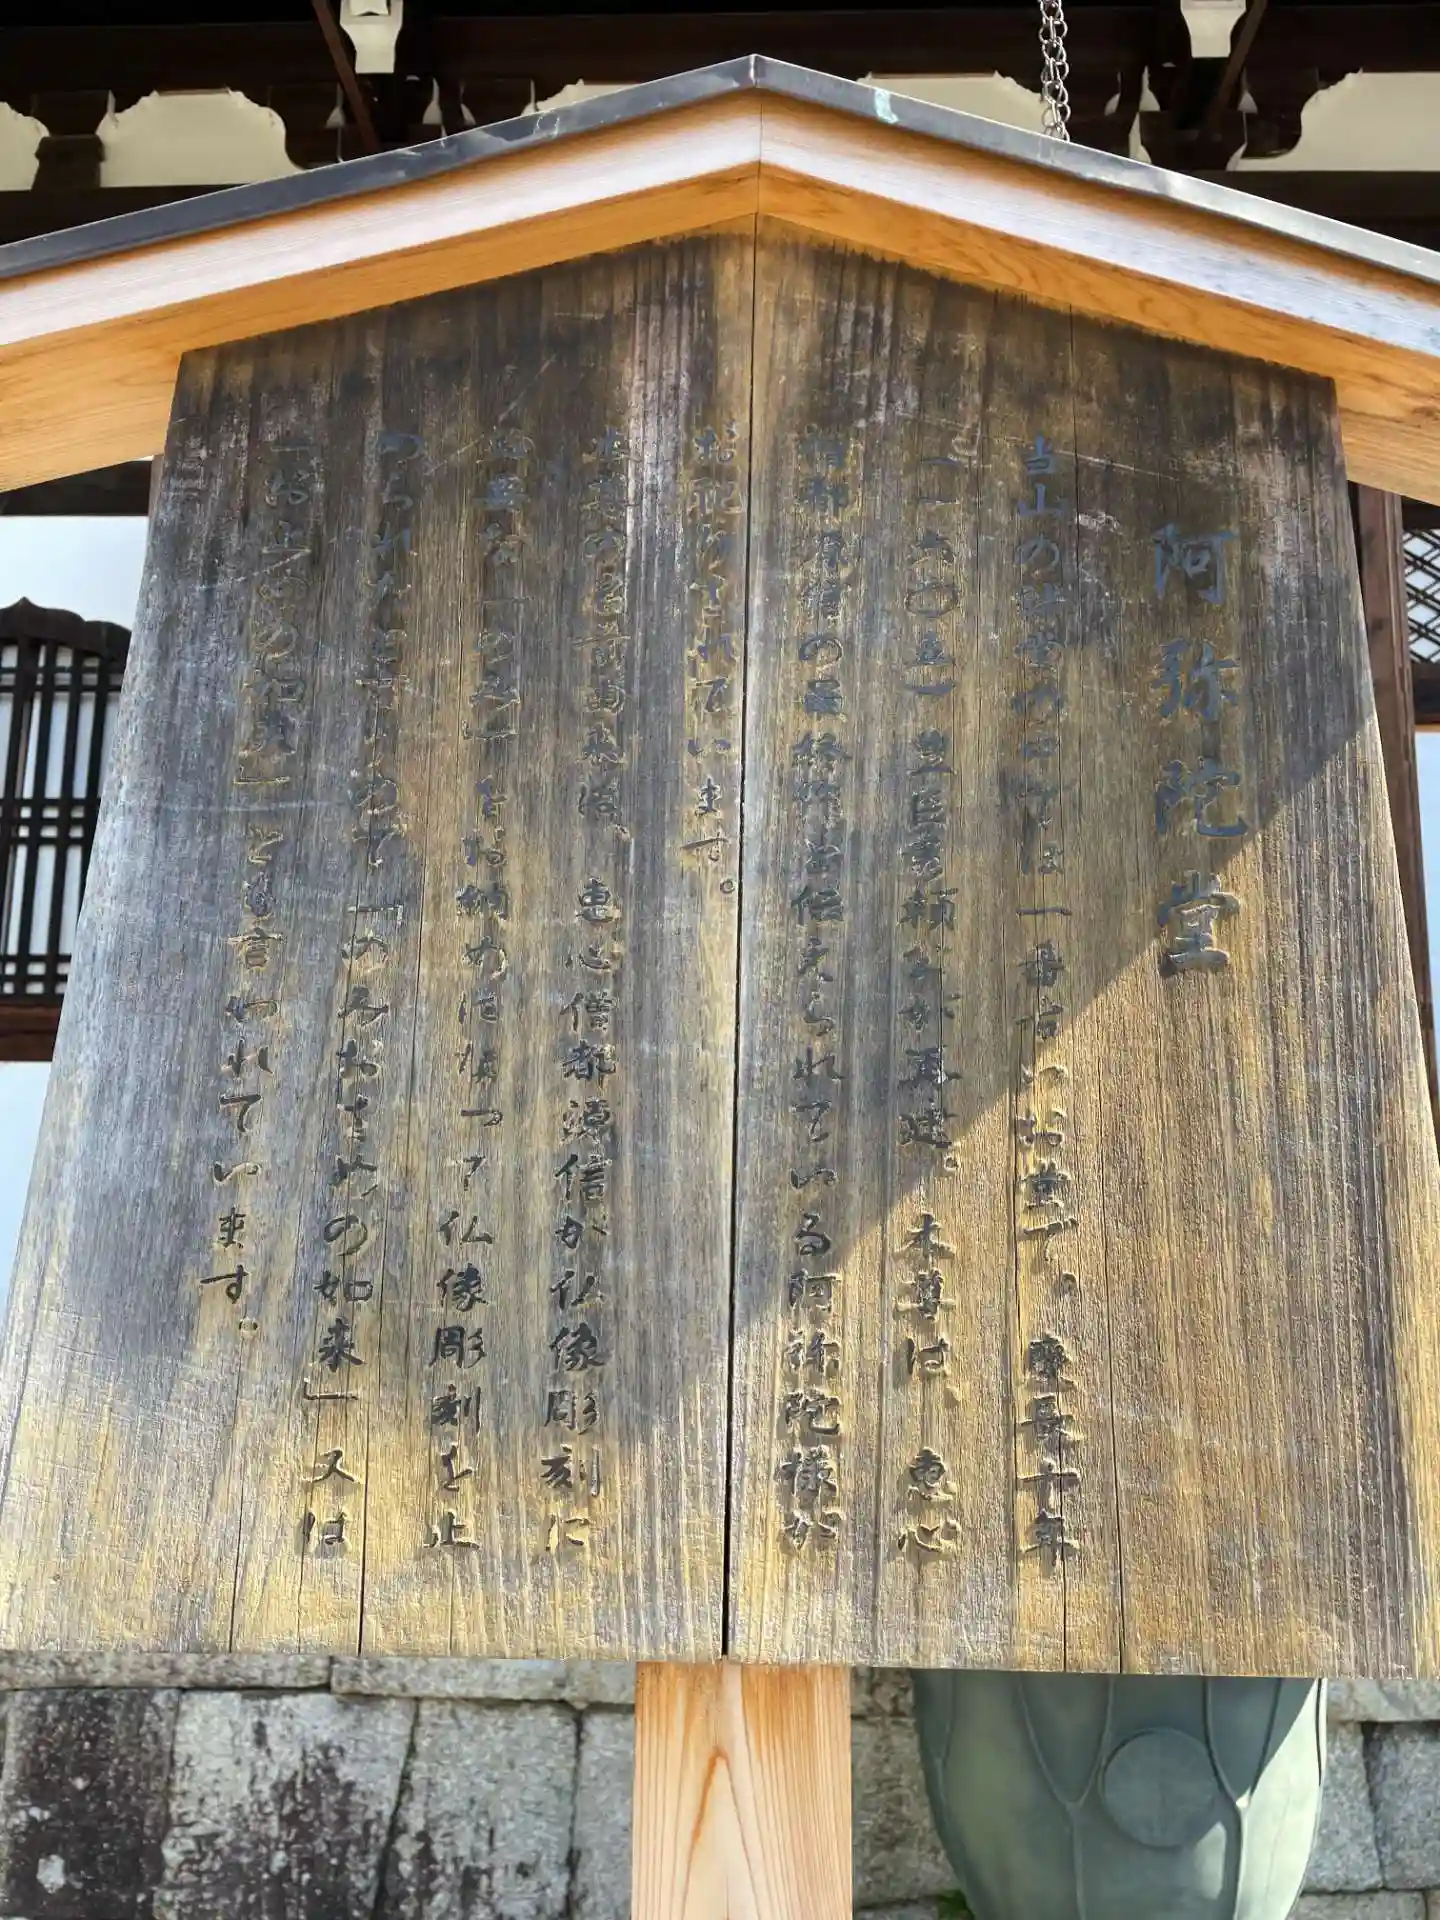 阿弥陀堂
当山の諸堂の中では一番古いお堂で。慶長十年
(一六〇五)豊臣秀頼公が再建。本尊は、恵心
僧都源信の最終作と伝えられている阿弥陀様が
お祀りされています。
本尊の名前由来は、恵心僧都源信が仏像彫刻に
必要な「のみ」をお納め頂って仏像彫刻を止
められたと言われて「のみおさめの如来」又は
「お止めの如来」とも言われています。